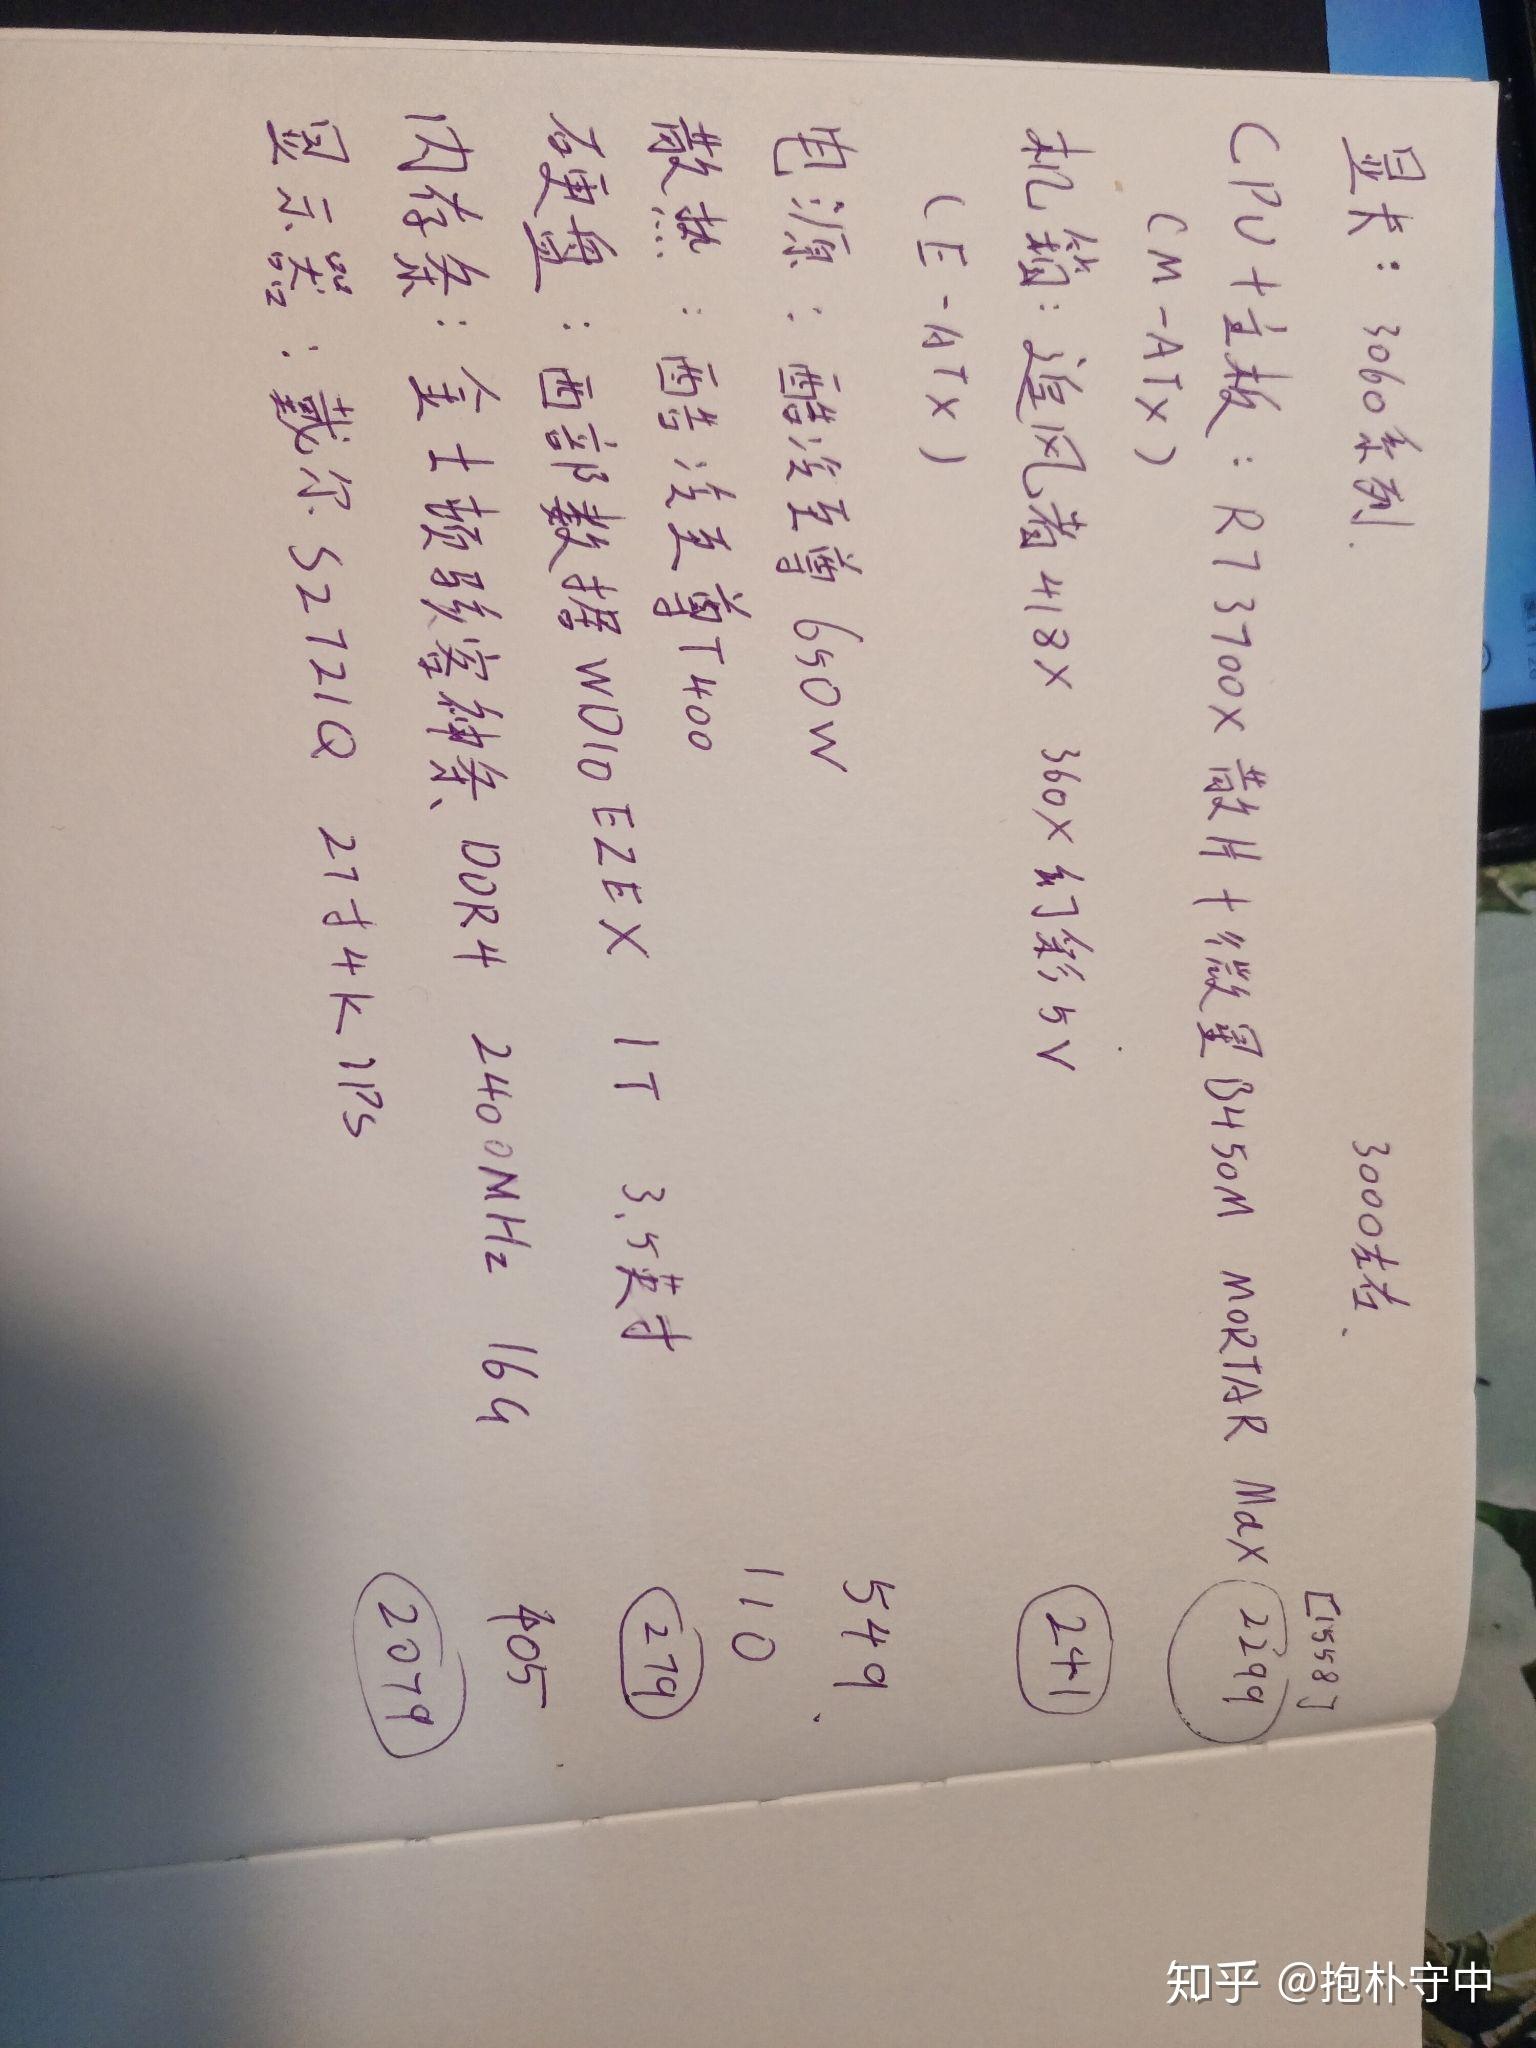 显卡：3060系列. 3000左右.
[1558]
CPU+主板：R7 3700X 散片+微星B450M MORTAR Max 2299
(M-ATX)
机箱：追风者418X 360X幻彩5V 241
(E-ATX)
电源：酷冷至尊650W 549.
散热：酷冷至尊T400 110
硬盘：西部数据WD10EZEX 1T 3.5英寸 279
内存条：金士顿骇客神条、DDR4 2400MHz 16G 405
显示器：戴尔S2721Q 27寸4K IPS 2079
知乎 @抱朴守中